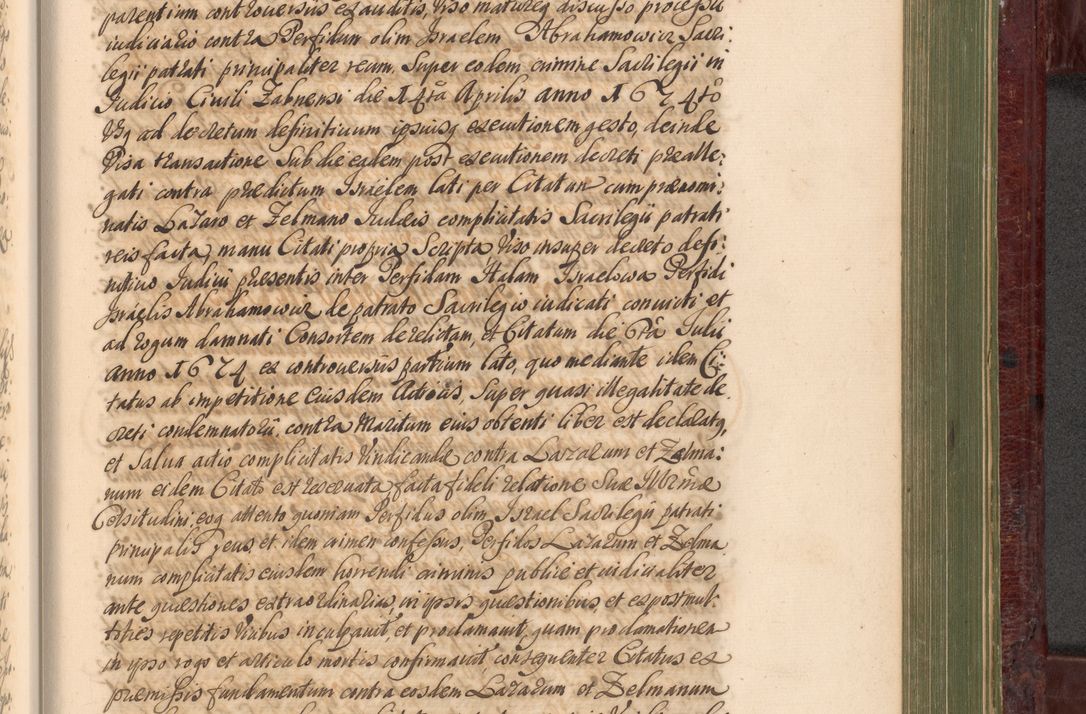 parentium controversiis exauditis, viso matureq discusso processu
iudiciario contra Perfidum olim Israelem Abrahamowicz Sacri:
legii patrati principaliter reum. Super eodem crimine Sacrilegii in
Iudicio Civili Zabnensi die 14ta Aprilis anno 1674to
Usq ad decretum definitivum ipsiusq executionem gesto, deinde
Visa transactione Sub die eadem post executionem decreti prealle:
gati contra prædictum Israelem lati per Citatum cum prænomi:
natis Lazaro et Zelmano Iudæis complicitatis Sacrilegii patrati
reis facta, manu Citati propria Scripta, Viso insuper decreto defi:
nitivo Iudicii præsentis inter Perfidam Halam Israelowa Perfidi
Israelis Abrahamowicz de patrato Sacrilegio iudicati convicti et
ad rogum damnati Consortem derelictam, et Citatum die 6ta Iulii
anno 1674 ex controversiis partium lato, quo mediante idem Ci:
tatus ab impetitione eiusdem Actricis, Super quasi illegalitate de:
creti condemnatorii, contra Maritum eius obtenti liber est declaratq,
et Salva actio complicitatis Vindicandæ contra Lazarum et Zelma:
num eidem Citato est reservata facta fideli relatione Suæ Illrmæ
Celsitudini, eoq attento quoniam Perfidus olim Israel Sacrilegii patrati
principalis reus, et idem crimen confessus, Perfidos Lazarum et Zelma
num complicitatis eiusdem horrendi criminis publice et iudicialiter
ante quæstiones extraordinarias, in ipsis quæstionibus, et ex post mul:
toties repetitis vicibus inculpavit, et proclamavit, quam proclamationem
in ipso rogo et articulo mortis confirmavit consequenter Citatus ex
præmissis fundamentum contra eosdem Lazarum et Zelmanum